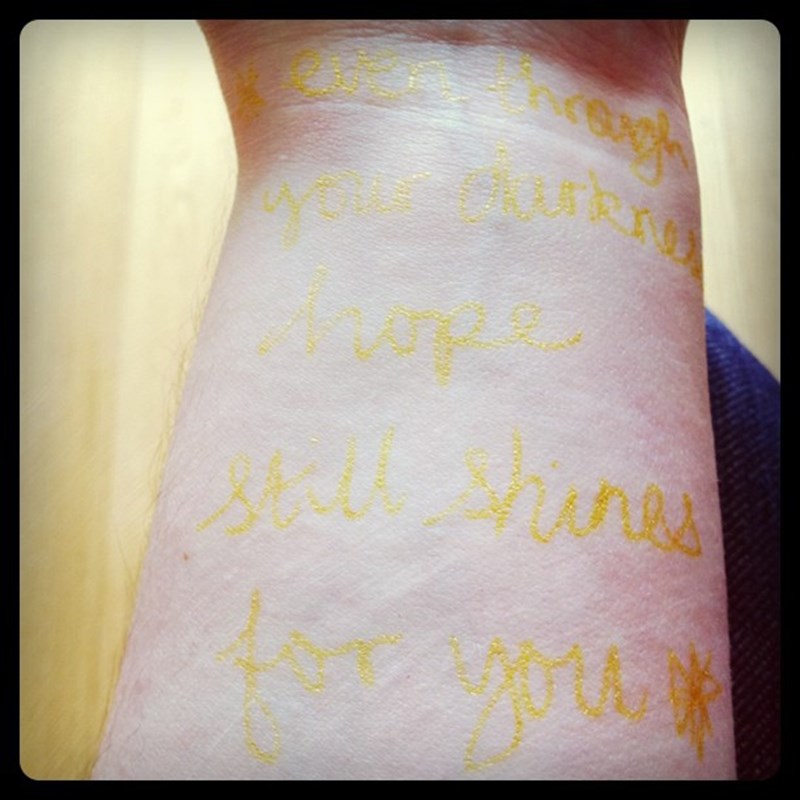 * even through
your darknes
hope
still shines
for you *